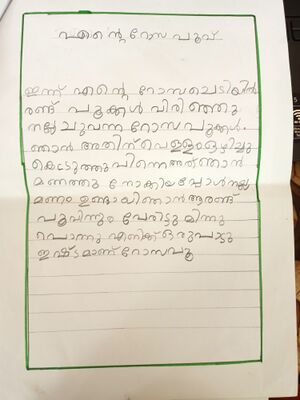 എന്റെ റോസ പൂവ്
ഇന്ന് എന്റെ റോസചെടിയിൽ
രണ്ട് പൂക്കൾ വിരിഞ്ഞു
നല്ല ചുവന്ന റോസ പൂക്കൾ.
ഞാൻ അതിന് വെള്ളം ഒഴിച്ചു
കൊടുത്തു പിന്നെ അത് ഞാൻ
മണത്തു നോക്കിയപ്പോൾ നല്ല
മണം ഉണ്ടായി ഞാൻ ആ രണ്ട്
പൂവിനും പേരിട്ടു മിന്നു
പൊന്നു എനിക്ക് ഒരുപാടു
ഇഷ്ടമാണ് റോസപൂ